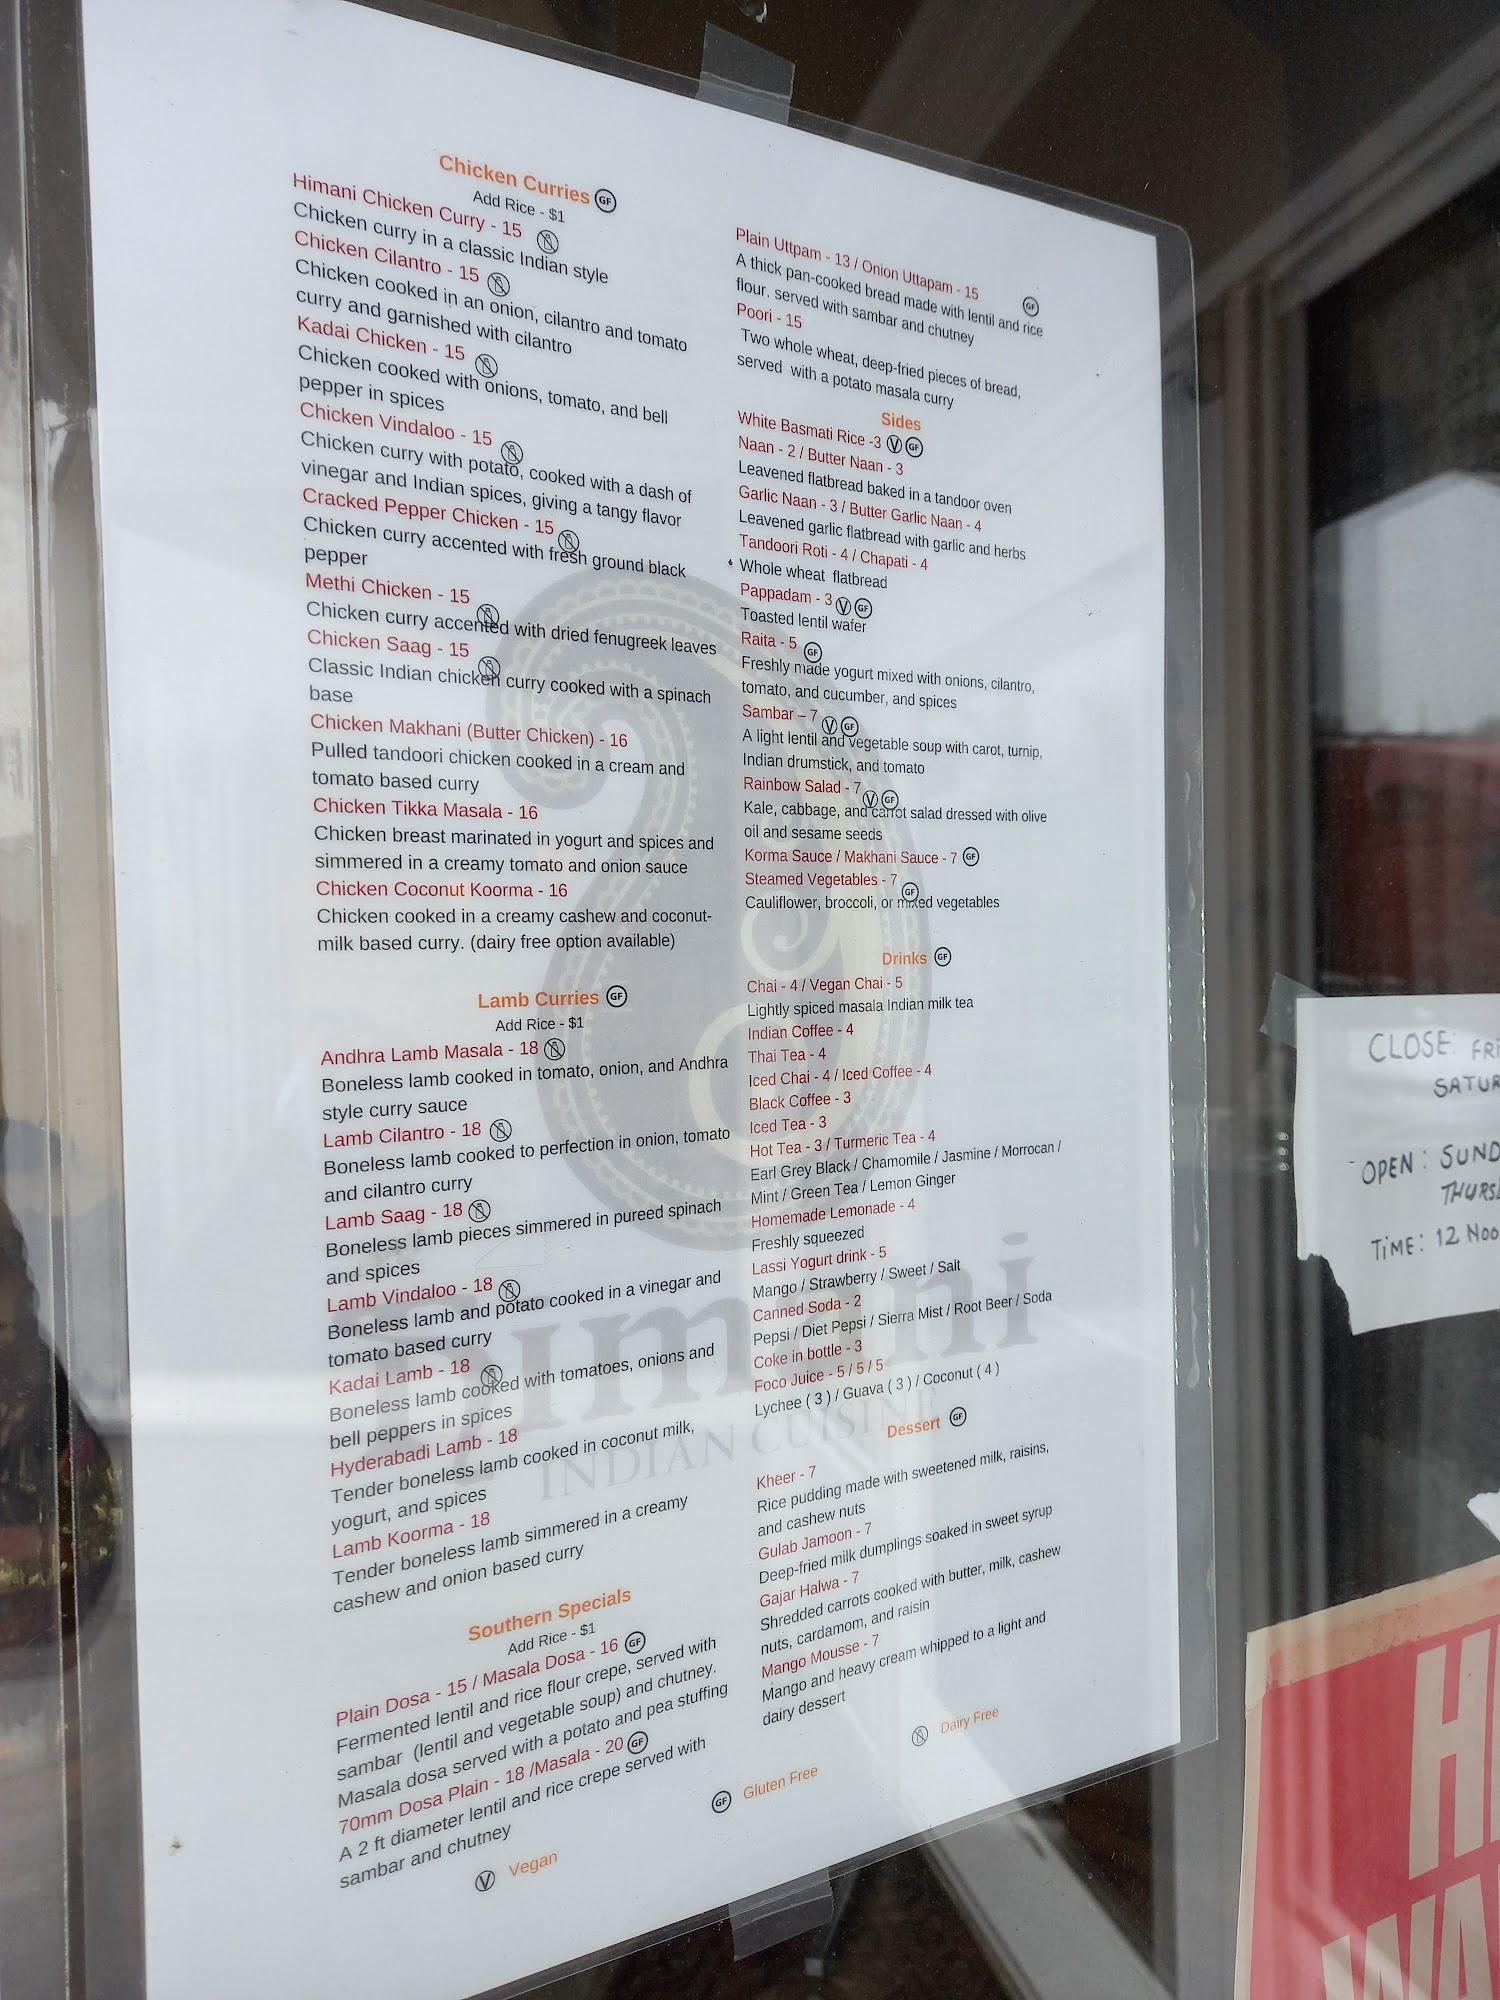 Chicken Curries GF
Add Rice - $1
Himani Chicken Curry - 15
Chicken curry in a classic Indian style
Chicken Cilantro - 15
Chicken cooked in an onion, cilantro and tomato
curry and garnished with cilantro
Kadai Chicken - 15
Chicken cooked with onions, tomato, and bell
pepper in spices
Chicken Vindaloo - 15
Chicken curry with potato, cooked with a dash of
vinegar and Indian spices, giving a tangy flavor
Cracked Pepper Chicken - 15
Chicken curry accented with fresh ground black
pepper
Methi Chicken - 15
Chicken curry accented with dried fenugreek leaves
Chicken Saag - 15
Classic Indian chicken curry cooked with a spinach
base
Chicken Makhani (Butter Chicken) - 16
Pulled tandoori chicken cooked in a cream and
tomato based curry
Chicken Tikka Masala - 16
Chicken breast marinated in yogurt and spices and
simmered in a creamy tomato and onion sauce
Chicken Coconut Koorma - 16
Chicken cooked in a creamy cashew and coconut-
milk based curry. (dairy free option available)
Lamb Curries GF
Add Rice - $1
Andhra Lamb Masala - 18
Boneless lamb cooked in tomato, onion, and Andhra
style curry sauce
Lamb Cilantro - 18
Boneless lamb cooked to perfection in onion, tomato
and cilantro curry
Lamb Saag - 18
Boneless lamb pieces simmered in pureed spinach
and spices
Lamb Vindaloo - 18
Boneless lamb and potato cooked in a vinegar and
tomato based curry
Kadai Lamb - 18
Boneless lamb cooked with tomatoes, onions and
bell peppers in spices
Hyderabadi Lamb - 18
Tender boneless lamb cooked in coconut milk,
yogurt, and spices
Lamb Koorma - 18
Tender boneless lamb simmered in a creamy
cashew and onion based curry
Southern Specials
Add Rice - $1
Plain Dosa - 15 / Masala Dosa - 16 GF
Fermented lentil and rice flour crepe, served with
sambar (lentil and vegetable soup) and chutney.
Masala dosa served with a potato and pea stuffing
70mm Dosa Plain - 18 /Masala - 20 GF
A 2 ft diameter lentil and rice crepe served with
sambar and chutney
Plain Uttpam - 13 / Onion Uttapam - 15 GF
A thick pan-cooked bread made with lentil and rice
flour. served with sambar and chutney
Poori - 15
Two whole wheat, deep-fried pieces of bread,
served with a potato masala curry
Sides
White Basmati Rice -3 V GF
Naan - 2 / Butter Naan - 3
Leavened flatbread baked in a tandoor oven
Garlic Naan - 3 / Butter Garlic Naan - 4
Leavened garlic flatbread with garlic and herbs
Tandoori Roti - 4 / Chapati - 4
Whole wheat flatbread
Pappadam - 3 V GF
Toasted lentil wafer
Raita - 5 GF
Freshly made yogurt mixed with onions, cilantro,
tomato, and cucumber, and spices
Sambar – 7 V GF
A light lentil and vegetable soup with carot, turnip,
Indian drumstick, and tomato
Rainbow Salad - 7 V GF
Kale, cabbage, and carrot salad dressed with olive
oil and sesame seeds
Korma Sauce / Makhani Sauce - 7 GF
Steamed Vegetables - 7 GF
Cauliflower, broccoli, or mixed vegetables
Drinks GF
Chai - 4 / Vegan Chai - 5
Lightly spiced masala Indian milk tea
Indian Coffee - 4
Thai Tea - 4
Iced Chai - 4 / Iced Coffee - 4
Black Coffee - 3
Iced Tea - 3
Hot Tea - 3 / Turmeric Tea - 4
Earl Grey Black / Chamomile / Jasmine / Morrocan /
Mint / Green Tea / Lemon Ginger
Homemade Lemonade - 4
Freshly squeezed
Lassi Yogurt drink - 5
Mango / Strawberry / Sweet / Salt
Canned Soda - 2
Pepsi / Diet Pepsi / Sierra Mist / Root Beer / Soda
Coke in bottle - 3
Foco Juice - 5 / 5 / 5
Lychee ( 3 ) / Guava ( 3 ) / Coconut ( 4 )
Dessert GF
Kheer - 7
Rice pudding made with sweetened milk, raisins,
and cashew nuts
Gulab Jamoon - 7
Deep-fried milk dumplings soaked in sweet syrup
Gajar Halwa - 7
Shredded carrots cooked with butter, milk, cashew
nuts, cardamom, and raisin
Mango Mousse - 7
Mango and heavy cream whipped to a light and
dairy dessert
V Vegan
GF Gluten Free
Dairy Free
Himani
INDIAN CUISINE
CLOSE: FRI
SATUR
OPEN: SUND
THURS
TIME: 12 NOO